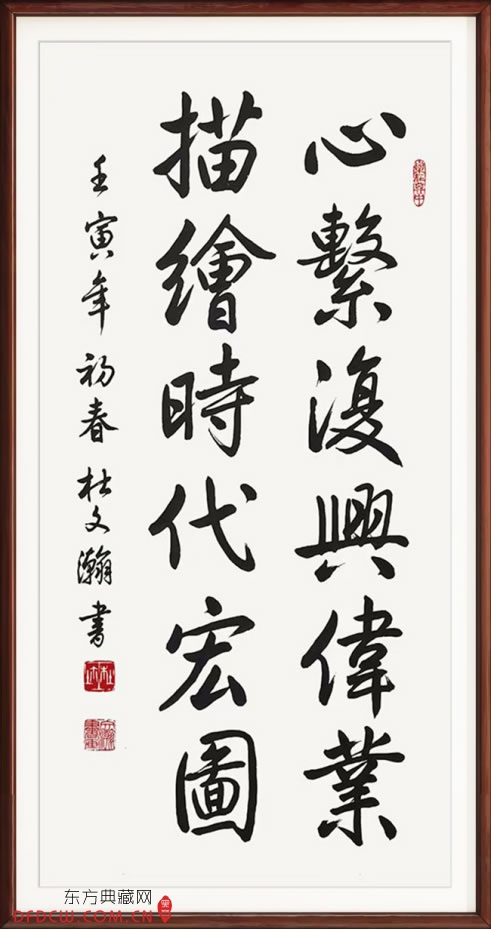 心繫復興偉業
描繪時代宏圖
壬寅年初春杜文瀚書
东方典藏网
DFDCW.COM.CN